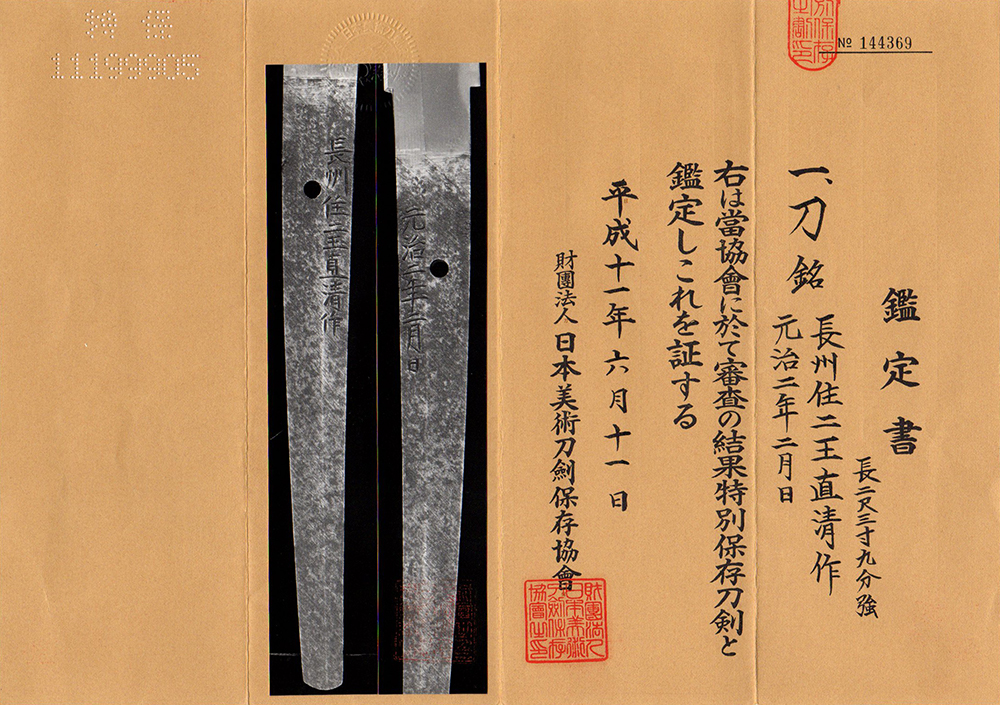 特保
11199905
No 144369
鑑定書
一、刀 銘 長州住二王直清作
元治二年二月日
長二尺三寸九分強
右は當協會に於て審査の結果特別保存刀剣と
鑑定しこれを証する
平成十一年六月十一日
財團法人日本美術刀劍保存協會
長州住二王直清作
元治二年二月日